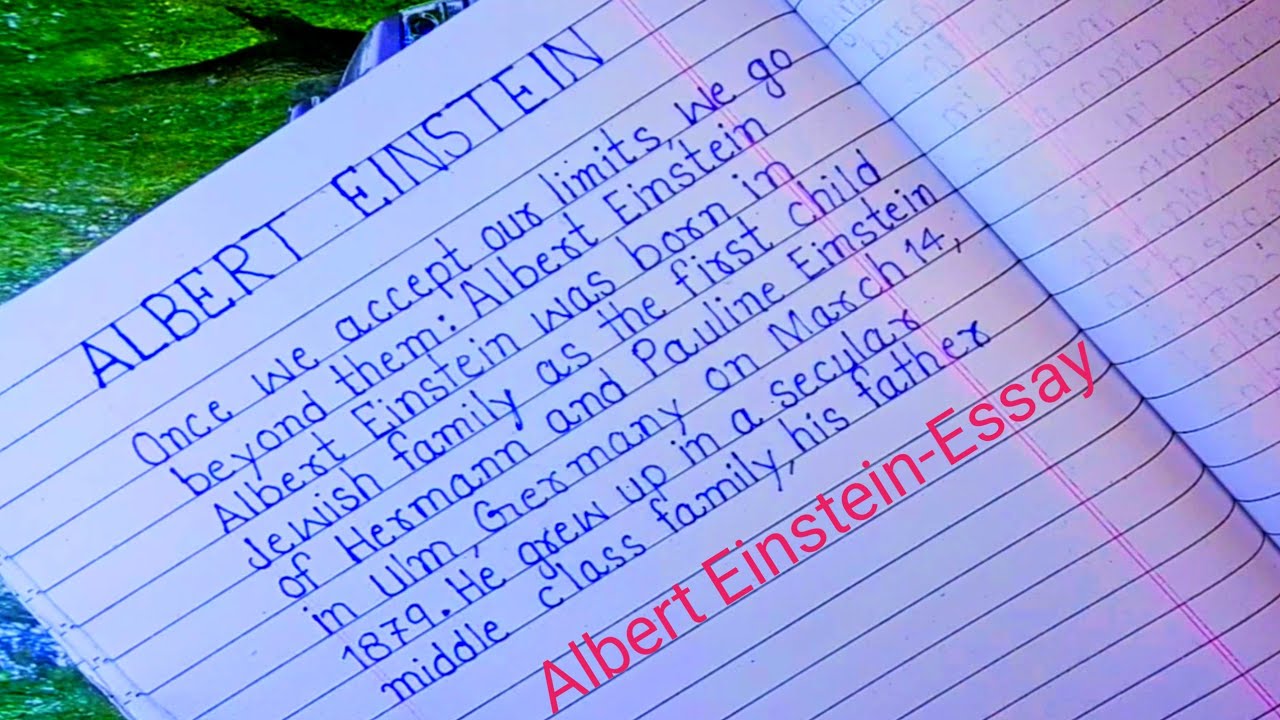 ALBERT EINSTEIN
Once we accept our limits, we go
beyond them: Albert Einstein
Albert Einstein was born in
Jewish family as the first child
of Hermann and Pauline Einstein
in Ulm, Germany on March 14,
1879. He grew up in a secular
middle class family, his father
Albert Einstein-Essay